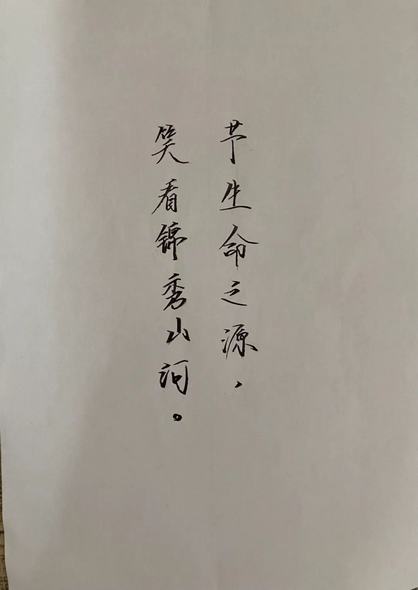 芐生命之源，
笑看锦秀山河。